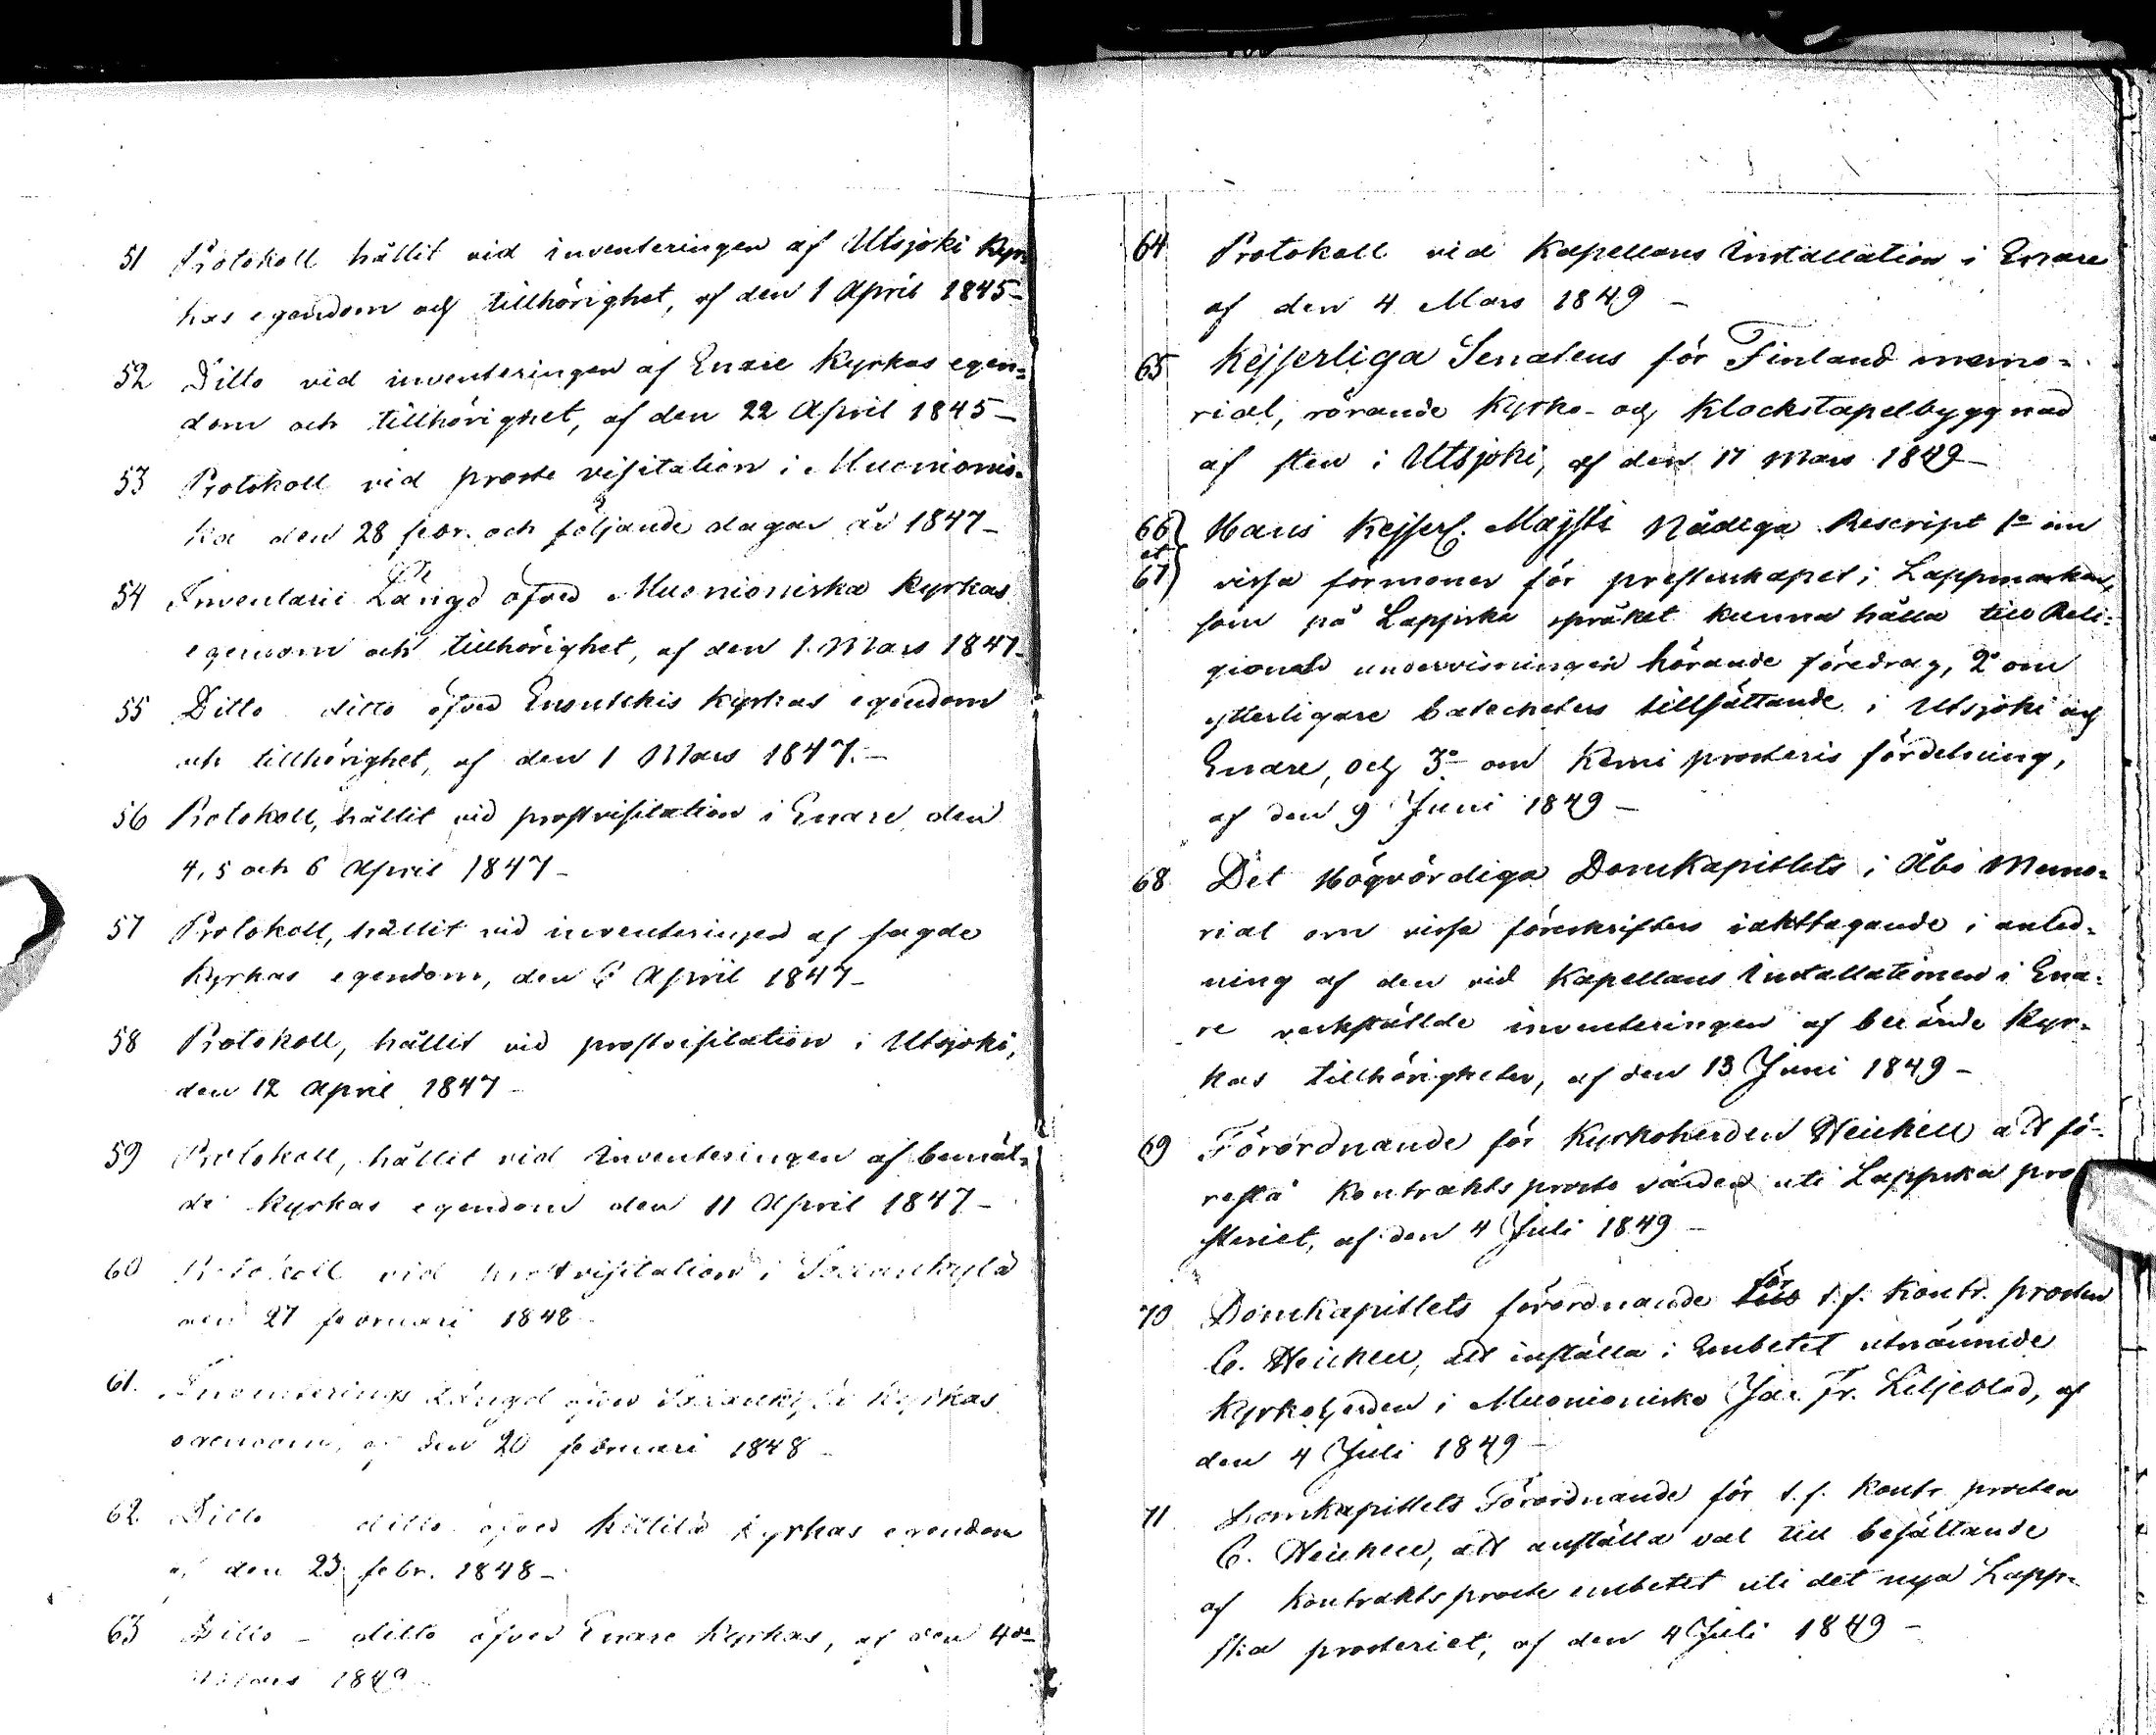 51 Protokoll hållit vid inventeringen af Utsjoki Kyr-
kas egendom och tillhörighet, af den 1 April 1845 –
52 Ditto vid inventeringen af Enare Kyrkas egen=
dom och tillhörighet, af den 22 April 1845 –
53 Protokoll vid proste visitation i Muonionis=
ka den 28 febr. och följande dagar år 1847 –
54 Inventarie Längd öfver Muonioniska Kyrkas
egendom och tillhörighet, af den 1 Mars 1847 –
55 Ditto ditto öfver Enontekis Kyrkas egendom
och tillhörighet, af den 1 Mars 1847. –
56 Protokoll, hållit vid prostvisitation i Enare den
4, 5 och 6 April 1847 –
57 Protokoll, hållit vid inventeringen af sagde
Kyrkas egendom, den 6 April 1847 –
58 Protokoll, hållit vid prostvisitation i Utsjoki,
den 12 April 1847 –
59 Protokoll, hållit vid Inventeringen af bemäl=
de Kyrkas egendom den 11 April 1847 –
60 Protokoll vid prostvisitation i Sodankylä
den 27 februari 1848
61. Inventerings Längd öfver Sodankylä Kyrkas
egendom, af den 20 februari 1848 –
62. Ditto ditto öfver Kittilä Kyrkas egendom
af den 23 febr. 1848 –
63 Ditto – ditto öfver Enare Kyrkas, af den 4de
Mars 1849
64 Protokoll vid Kapellans Installation i Enare
af den 4 Mars 1849 –
65 Kejserliga Senatens för Finland memo=
rial, rörande Kyrko- och Klockstapelbyggnad
af sten i Utsjoki, af den 17 Mars 1849 –
66 Hans Kejserl. Majsts Nådiga Rescript 1o om
et
67 vissa förmoner för presterskapet i Lappmarken,
som på Lappska språket kunna hålla till Reli=
gions undervisningen hörande föredrag, 2o om
ytterligare Catecheters tillsättande i Utsjoki och
Enare, och 3o om Kemi prosteris fördelning,
af den 9 Juni 1849 –
68 Det Högvördiga Domkapitlets i Åbo Memo=
rial om vissa föreskrifters iakttagande i anled=
ning af den vid Kapellans Installationen i Ena=
re verkställde inventeringen af berörde Kyr=
kas tillhörigheter, af den 13 Juni 1849 –
69 Förordnande för Kyrkoherden Heickell att fö-
restå Kontrakts prosts vården uti Lappska pro
steriet, af den 4 Juli 1849 –
70 Domkapitlets förordnande för t. f. Kontr. prosten
C. Heickell, att inställa i Embetet utnämnde
Kyrkoherden i Muonionisko Jac. Fr. Liljeblad, af
den 4 Juli 1849 –
71 Domkapitlets Förordnande för t. f. Kontr. prosten
C. Heickell, att anställa val till besättande
af Kontrakts proste embetet uti det nya Lapp=
ska prosteriet, af den 4 Juli 1849 –